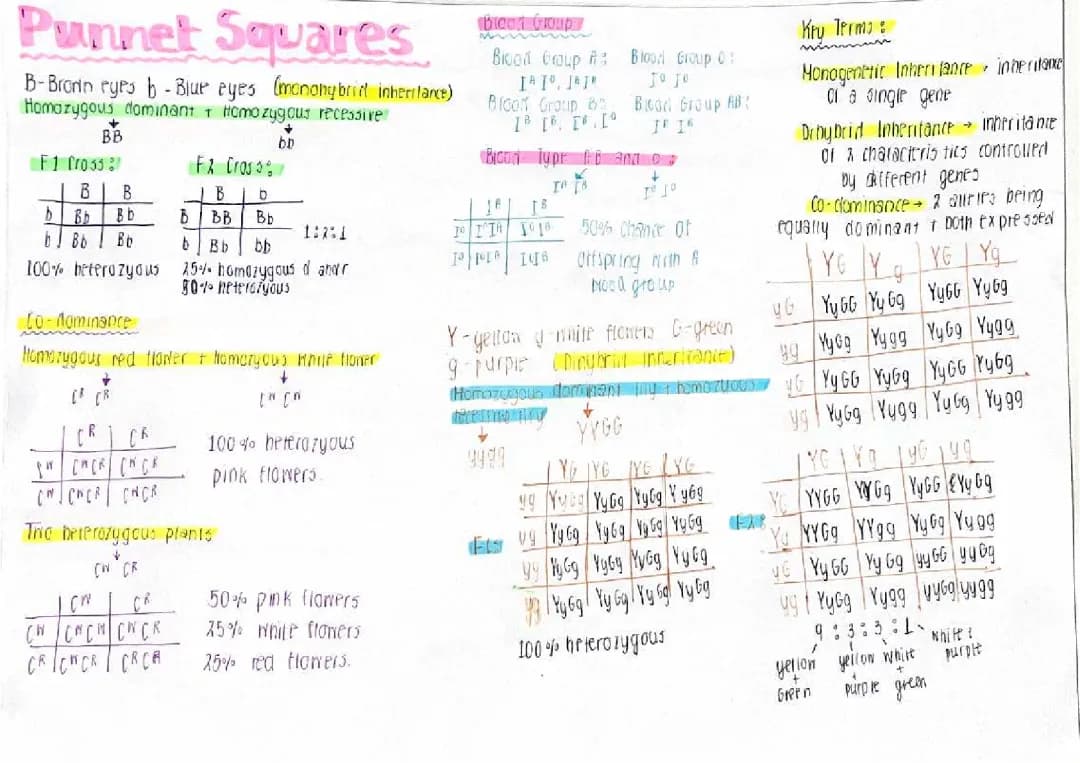 Punnet Squares
B-Brown eyes b - Blue eyes (monohybrid inheritance)
Homozygous dominant + Homozygous recessive
BB
bb
F1 Cross:
B B
b Bb Bb
b Bb Bb
100% heterozyous
F2 Cross:
B b
B BB Bb
b Bb bb
1:2:1
25% homozygous d and r
50% heterozyous
Co-dominance
Homozygous red flower + homozyous white flower
Cᴿ Cᴿ
Cᵂ Cᵂ
Cᴿ Cᴿ
Cᵂ CᵂCᴿ CᵂCᴿ
Cᵂ CᵂCᴿ CᵂCᴿ
100% heterozyous
pink flowers.
Two heterozygous plants
Cᵂ Cᴿ
Cᵂ Cᴿ
Cᵂ CᵂCᵂ CᵂCᴿ
Cᴿ CᵂCᴿ CᴿCᴿ
50% pink flowers
25% white flowers
25% red flowers.
Blood Group
Blood Group A:
Iᴬ Iᴼ, IᴬIᴬ
Blood Group O:
Iᴼ Iᴼ
Blood Group B:
Iᴮ Iᴮ, Iᴮ, Iᴼ
Blood Group AB:
Blood Type AB and O:
Iᴬ Iᴮ
Iᴼ Iᴼ
50% chance of
offspring with A
blood group
Y-yellow y-white flowers G-green
g-purple (Dihybrid inheritance)
Homozygous dominant lily + homozuous
recessive lily
YYGG
yygg
F1:
YG YG YG YG
yg YyGg YyGg YyGg YyGg
yg YyGg YyGg YyGg YyGg
yg YyGg YyGg YyGg YyGg
yg YyGg YyGg YyGg YyGg
100% heterozygous
Key Terms:
Monogenetic Inheritance → inheritance
of a single gene
Dihybrid Inheritance → inheritance
of 2 characteristics controlled
by different genes
Co-dominance → 2 alleles being
equally dominant + both expressed
YG Yg YG Yg
yG YyGG YyGg YyGG YyGg
yg YyGg Yygg YyGg Yygg
yG YyGG YyGg YyGG YyGg
yg YyGg Yygg YyGg Yygg
F2:
YG Yg yG yg
YG YYGG YYGg YyGG YyGg
Yg YYGg YYgg YyGg Yygg
yG YyGG YyGg yyGG yyGg
yg YyGg Yygg yyGg yygg
9:3:3:1
yellow
+
Green
yellow
+
purple
white
+
green
white +
purple